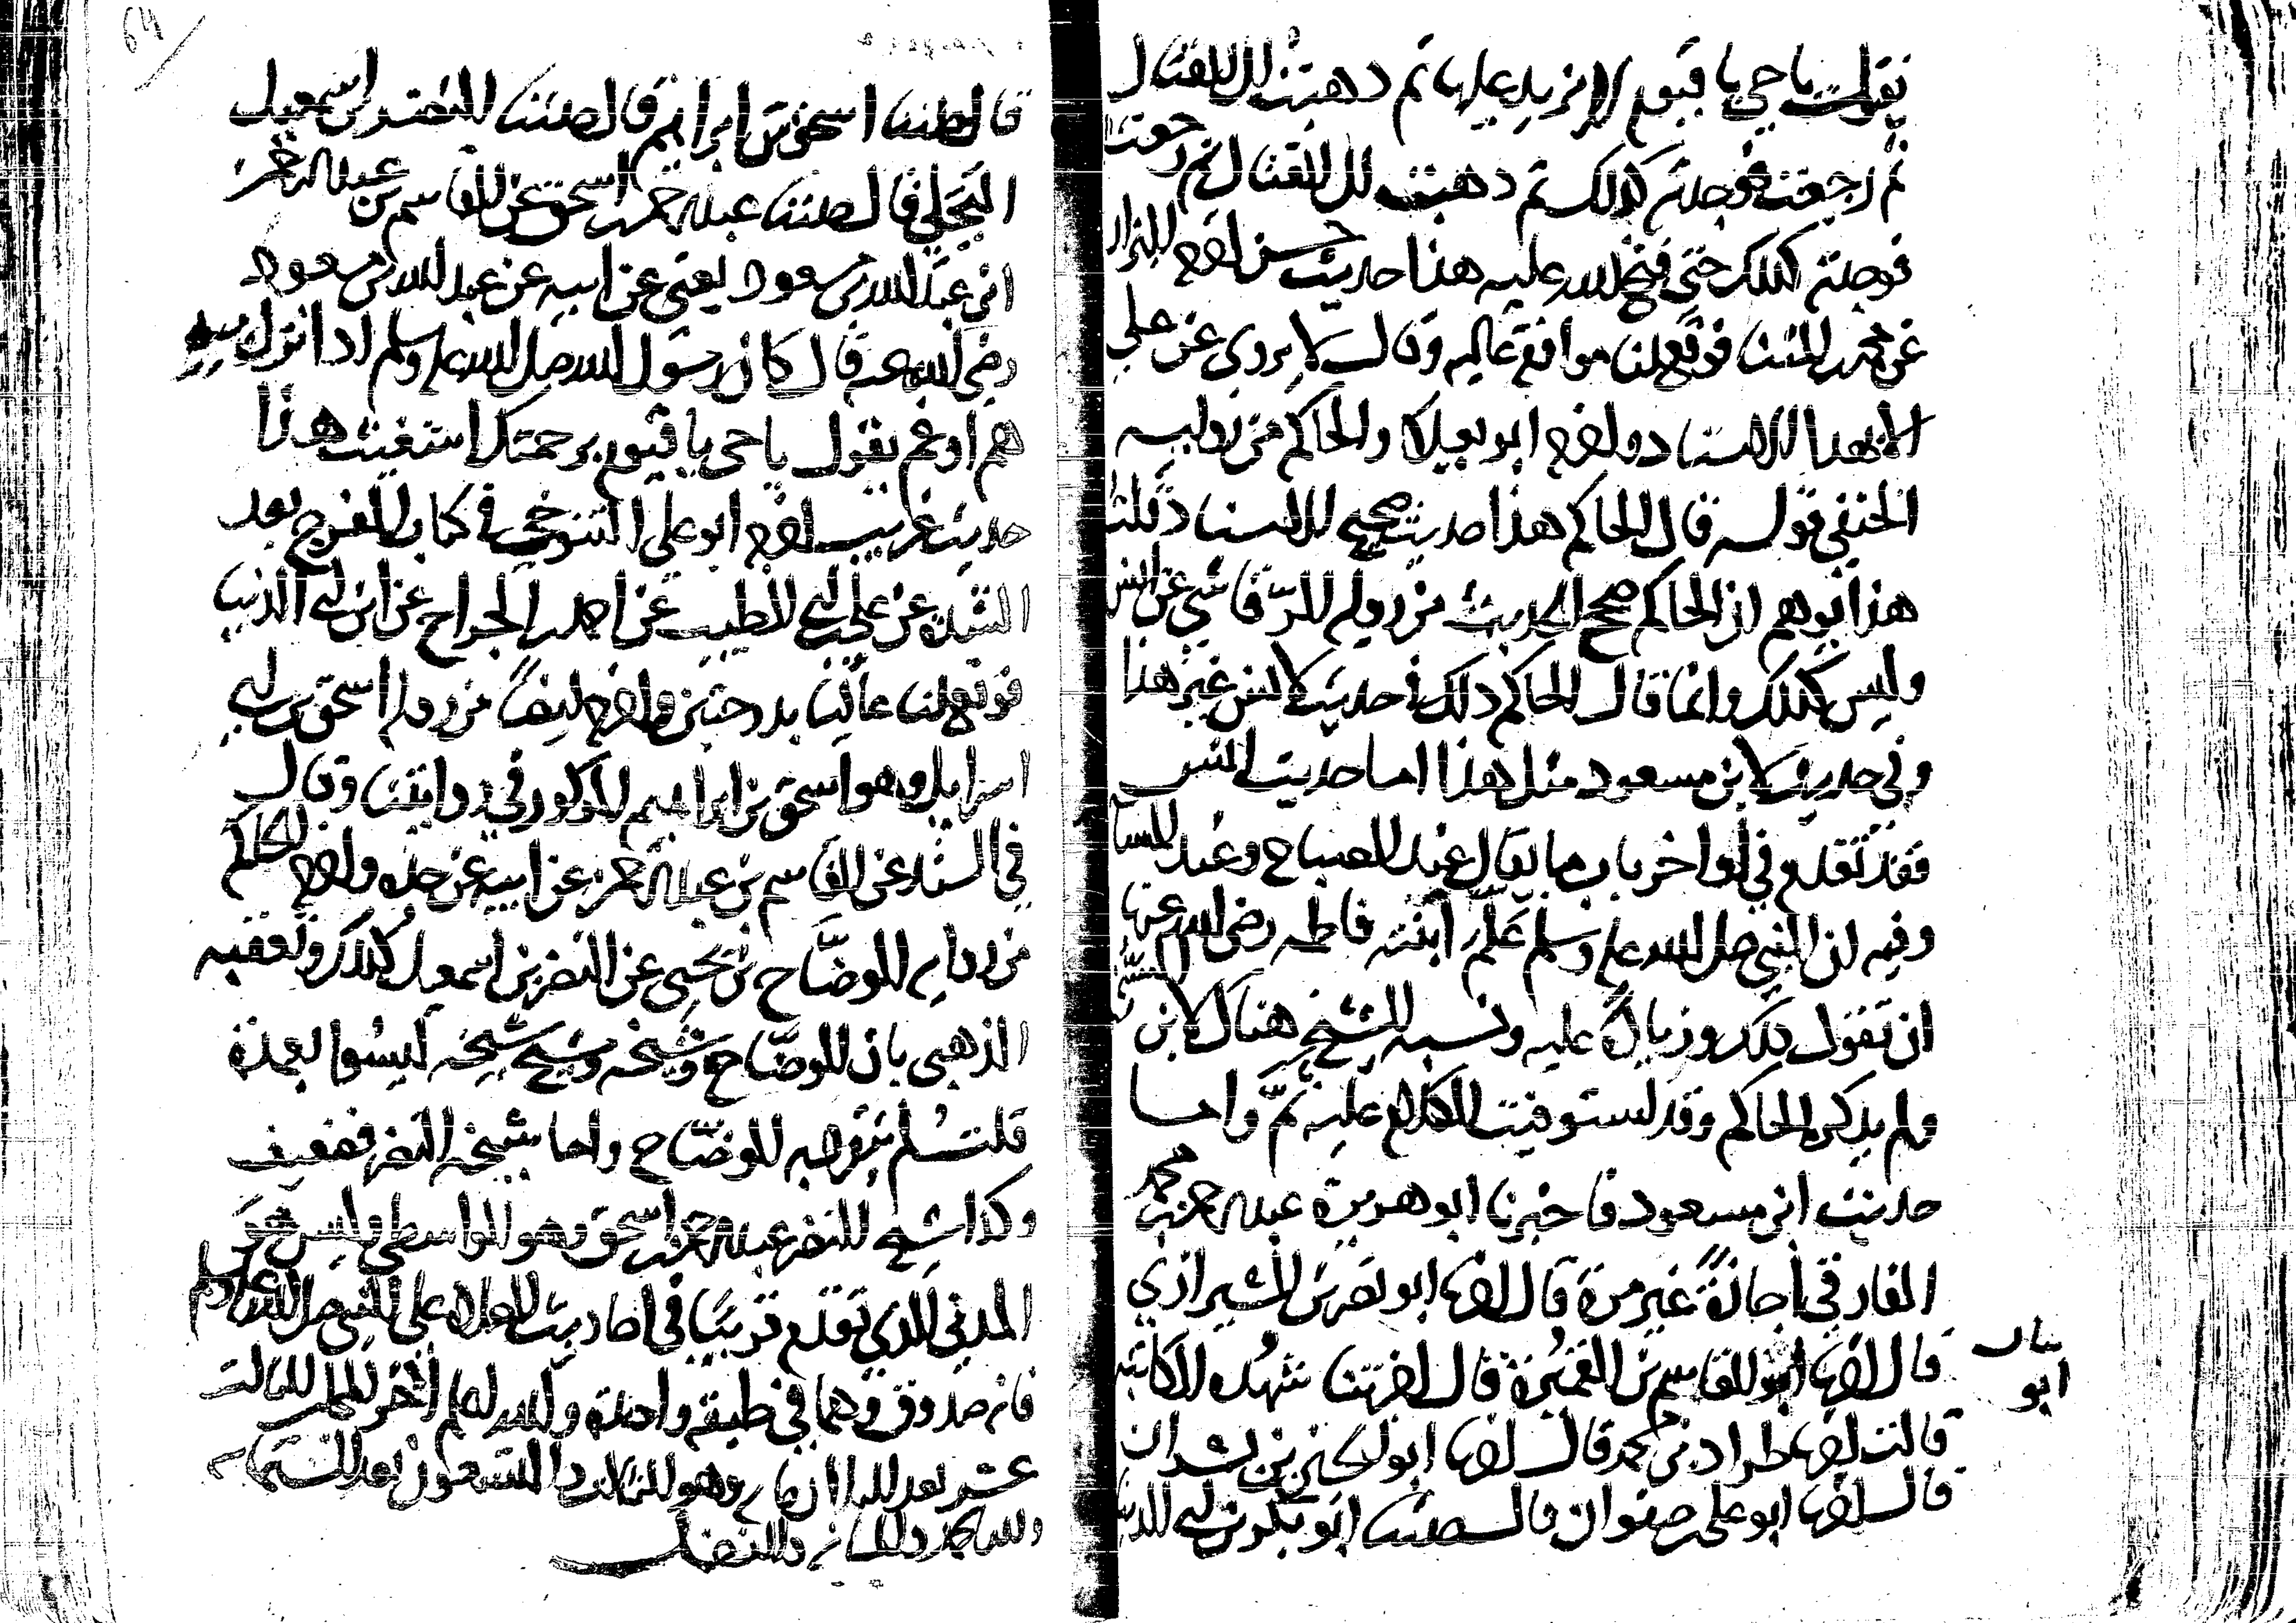 يقول يا حي يا قيوم لا يزيد عليها ثم ذهبت الى القتال
ثم رجعت فوجدته كذلك ثم ذهبت الى القتال ثم رجعت
فوجدته كذلك حتى فتح الله عليه هذا حديث حسن اخرجه البزار
عن محمد بن المثنى فوقع لنا موافقة عالية وقال لا يروى عن علي
الا بهذا الاسناد واخرجه ابو يعلى والحاكم من رواية
الحنفي قوله قال الحاكم هذا حديث صحيح الاسناد قلت
هذا يوهم ان الحاكم صحح الحديث من رواية الرقاشي عن انس
وليس كذلك وانما قال الحاكم ذلك في حديث لانس غير هذا
وفي حديث لابن مسعود مثل هذا اما حديث انس
فقد تقدم في اواخر باب ما يقال عند الصباح وعند المساء
وفيه ان النبي صلى الله عليه وسلم علم ابنته فاطمة رضى الله عنها
ان تقول ذلك وزيادة عليه ونسبه الشيخ هناك لابن السني
ولم يذكر الحاكم وقد استوفيت الكلام عليه ثم واما
حديث ابن مسعود فاخبرنا ابو هريرة عبد الرحمن بن محمد
الفارقي اجازة غير مرة قال اخبرنا ابو نصر بن الشيرازي
قال اخبرنا ابو القاسم بن القميرة قال اخبرتنا شهدة الكاتبة
قالت اخبرنا طراد بن محمد قال اخبرنا ابو الحسين بن بشران
قال اخبرنا ابو علي بن صفوان قال حدثنا ابو بكر بن ابي الدنيا
ابو
64
قال حدثنا اسحق بن ابراهيم قال حدثنا النضر بن اسمعيل
البجلي قال حدثنا عبد الرحمن بن اسحق عن القاسم بن عبد الرحمن
ابن عبد الله بن مسعود يعني عن ابيه عن عبد الله بن مسعود
رضى الله عنه قال كان رسول الله صلى الله عليه وسلم اذا نزل به
هم او غم يقول يا حي يا قيوم برحمتك استغيث هذا
حديث غريب اخرجه ابو علي التنوخي في كتاب الفرج بعد
الشدة عن علي بن ابي الطيب عن احمد بن الجراح عن ابن ابي الدنيا
فوقع لنا عاليا بدرجتين واخرجه ايضا من رواية اسحق بن ابي
اسرايل وهو اسحق بن ابراهيم المذكور في روايتنا وقال
في السند عن القاسم بن عبد الرحمن عن ابيه عن جده واخرجه الحاكم
من رواية الوضاح بن يحيى عن النضر بن اسمعيل كذلك وتعقبه
الذهبي بان الوضاح وشيخه وشيخ شيخه ليسوا بعمدة
قلت لم ينفرد به الوضاح واما شيخه النضر فضعيف
وكذا شيخ النضر عبد الرحمن بن اسحق وهو الواسطي وليس هو
المدني الذي تقدم قريبا في احاديث الصلاة على النبي صلى الله عليه وسلم
فانه صدوق وهما في طبقة واحدة والله اعلم اخر المجلس الثالث